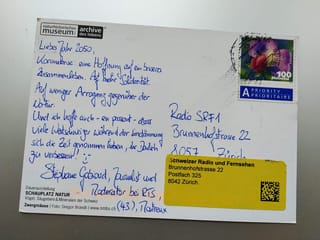 naturhistorisches museum: basel
archive des lebens
Liebe Jahr 2050,
Vorurteile eine Hoffnung auf ein besseres
Zusammenleben. Auf mehr Solidarität
Auf weniger Arroganz gegenüber der
Natur.
Und ich hoffe auch - ein passant - dass
viele während der
sich die Zeit genommen haben, ihr Deutsch
zu verbessern!
Journalist und
Moderator bei RTS,
(43), Montreux
Dauerausstellung
SCHAUPLATZ NATUR
Vögel, Säugetiere & Mineralien der Schweiz
Zwergmäuse | Foto: Gregor Brändli | www.nmbs.ch
100
HELVETIA
A PRIORITY
PRIORITAIRE
Radio SRF1
Brunnenhofstrasse 22
8057 Zürich
Schweizer Radio und Fernsehen
Brunnenhofstrasse 22
Postfach 325
8042 Zürich